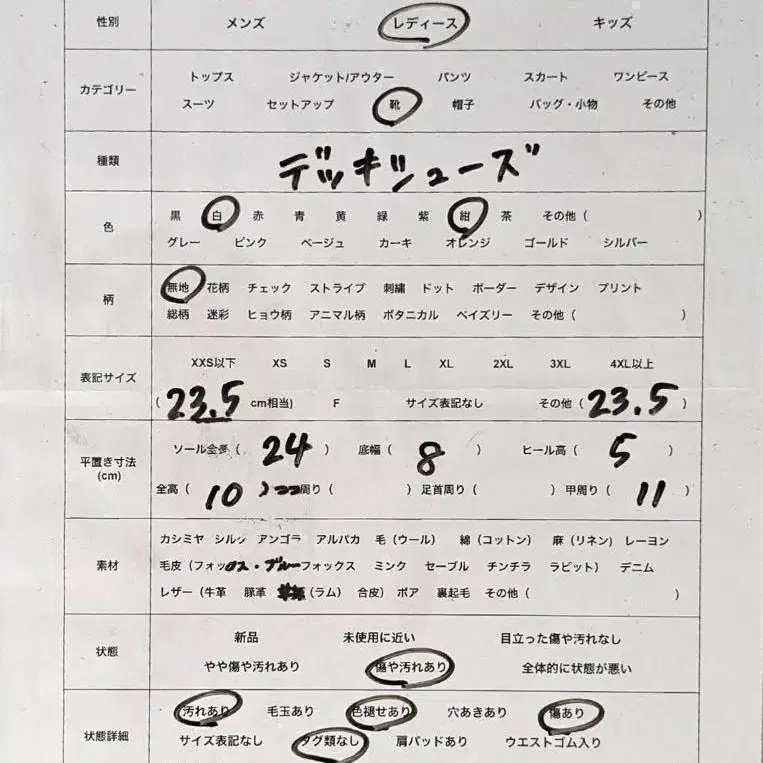 性別 メンズ レディース キッズ
カテゴリー トップス ジャケット/アウター パンツ スカート ワンピース
スーツ セットアップ 靴 帽子 バッグ・小物 その他
種類 デッキシューズ
色 黒 白 赤 青 黄 緑 紫 紺 茶 その他 ( )
グレー ピンク ベージュ カーキ オレンジ ゴールド シルバー
柄 無地 花柄 チェック ストライプ 刺繍 ドット ボーダー デザイン プリント
総柄 迷彩 ヒョウ柄 アニマル柄 ボタニカル ペイズリー その他 ( )
表記サイズ XXS以下 XS S M L XL 2XL 3XL 4XL以上
( 23.5 cm相当) F サイズ表記なし その他 ( 23.5 )
平置き寸法 ソール全長 ( 24 ) 底幅 ( 8 ) ヒール高 ( 5 )
(cm) 全高 ( 10 ) 周り ( ) 足首周り ( ) 甲周り ( 11 )
素材 カシミヤ シルク アンゴラ アルパカ 毛 (ウール) 綿 (コットン) 麻 (リネン) レーヨン
毛皮 (フォックス・ブルーフォックス ミンク セーブル チンチラ ラビット) デニム
レザー (牛革 豚革 (ラム) 合皮) ボア 裏起毛 その他 ( )
状態 新品 未使用に近い 目立った傷や汚れなし
やや傷や汚れあり 傷や汚れあり 全体的に状態が悪い
状態詳細 汚れあり 毛玉あり 色褪せあり 穴あきあり 傷あり
サイズ表記なし タグ類なし 肩パッドあり ウエストゴム入り